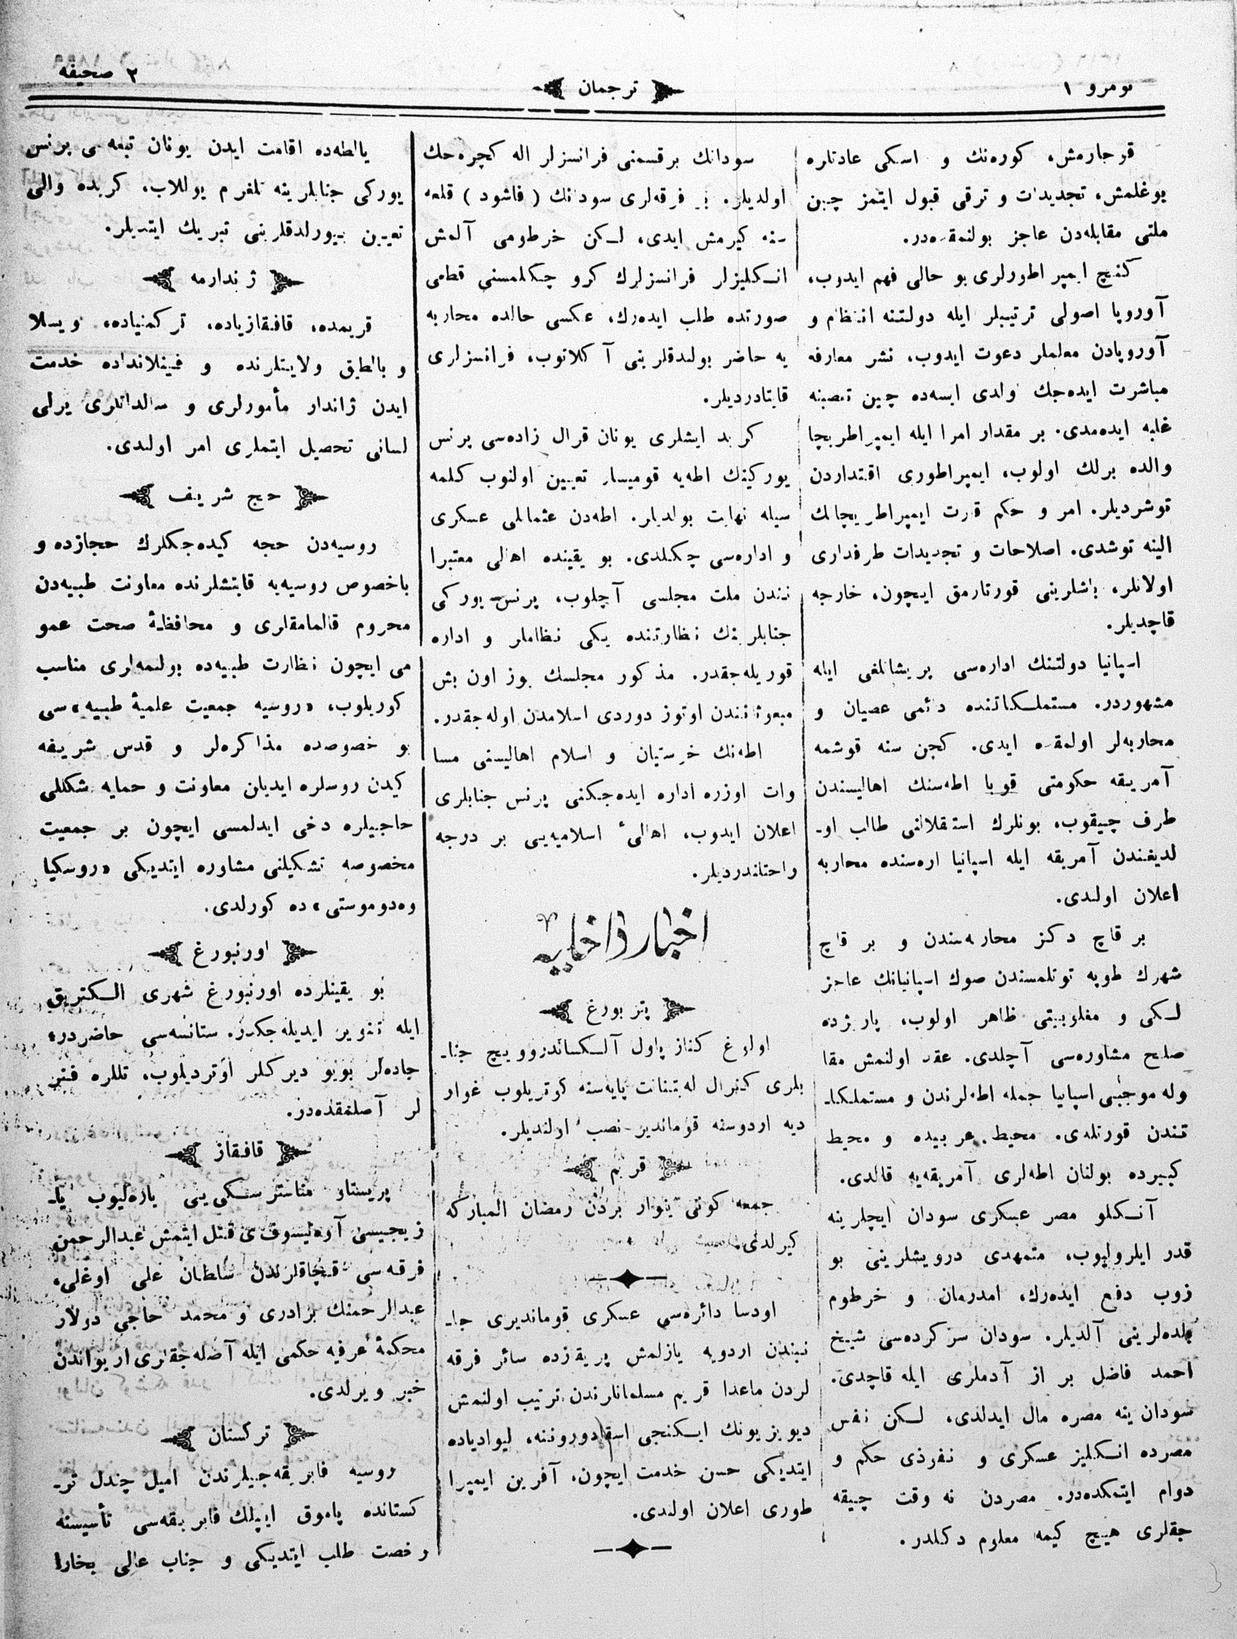 نومرو ١
ترجمان
٢ صحیفه
قوجارمش، كوره‌نك و اسكی عادتلره
بوغلمش، تجدیدات و ترقی قبول ایتمز چین
ملتی مقابله‌دن عاجز بولنمقده‌در.
كنج ایمپراطورلری بو حالی فهم ایدوب،
آوروپا اصولی ترتیبلر ایله دولتنه انتظام و
آوروپادن معلملر دعوت ایدوب، نشر معارفه
مباشرت ایده‌جك اولدی ایسه‌ده چین تعصبنه
غلبه ایده‌مدی. بر مقدار امرا ایله ایمپراطریچا
والده برلك اولوب، ایمپراطوری اقتداردن
توشردیلر. امر و حكم قدرت ایمپراطریچانك
الینه توشدی. اصلاحات و تجدیدات طرفداری
اولانلر، باشلرینی قورتارمق ایچون، خارجه
قاچدیلر.
اسپانیا دولتنك اداره‌سی پریشانلغی ایله
مشهوردر. مستملكاتنده دائمی عصیان و
محاربه‌لر اولمقده ایدی. كچن سنه قوشمه
آمریقه حكومتی قوبا اطه‌سنك اهالیسندن
طرف چیقوب، بونلرك استقلالنی طالب او-
لدیغندن آمریقه ایله اسپانیا اره‌سنده محاربه
اعلان اولندی.
بر قاچ دكز محاربه‌سندن و بر قاچ
شهرك طوپه توتلمسندن صوك اسپانیانك عاجز
لكی و مغلوبیتی ظاهر اولوب، پاریژده
صلح مشاوره‌سی آچلدی. عقد اولنمش مقا
وله موجبنی اسپانیا جمله اطه‌لرندن و مستملكا-
تندن قورتلدی. محیط غربیده و محیط
كبیرده بولنان اطه‌لری آمریقه‌یه قالدی.
آنكلو مصر عسكری سودان ایچلرینه
قدر ایلرولیوب، متمهدی درویشلرینی بو
زوب دفع ایده‌رك، امدرمان و خرطوم
بلده‌لرینی آلدیلر. سودان سركرده‌سی شیخ
احمد فاضل بر از آدملری ایله قاچدی.
سودان ینه مصره مال ایدلدی، لكن نفس
مصرده انكلیز عسكری و نفوذی حكم و
دوام ایتمكده‌در. مصردن نه وقت چیقه
جقلری هیچ كیمه معلوم دكلدر.
سودانك برقسمنی فرانسزلر اله كچره‌جك
اولدیلر. بر فرقه‌لری سودانك (فاشود) قلعه
سنه كیرمش ایدی، لكن خرطومی آلمش
انكلیزلر فرانسزلرك كرو چكلمسنی قطعی
صورتده طلب ایده‌رك، عكسی حالده محاربه
یه حاضر بولندقلرینی آكلاتوب، فرانسزلری
قایتاردیلر.
كرید ایشلری یونان قرال زاده‌سی پرنس
یوركینك اطه‌یه قومیسار تعیین اولنوب كلمه
سیله نهایت بولدیلر. اطه‌دن عثمانلی عسكری
و اداره‌سی چكلدی. بو یقینده اهالی معتبرا
نندن ملت مجلسی آچلوب، پرنس یوركی
جنابلرینك نظارتنده یكی نظاملر و اداره
قوریله‌جقدر. مذكور مجلسك یوز اون بش
مبعوثندن اوتوز دوردی اسلامدن اوله‌جقدر.
اطه‌نك خرستیان و اسلام اهالیسنی مسا
وات اوزره اداره ایده‌جكنی پرنس جنابلری
اعلان ایدوب، اهالیٔ اسلامیه‌یی بر درجه
راحتلندردیلر.
اخبار داخلیه
پتربورغ
اولوغ كناز پاول آلكساندروویچ جنا-
بلری كنرال له‌یتنانت پایه‌سنه كوتریلوب غوار
دیه اردوسنه قوماندیر نصب اولندیلر.
قریم
جمعه كونی ینوار بردن رمضان المباركه
كیرلدی.
اودسا دائره‌سی عسكری قوماندیری جا-
نبندن اردویه یازلمش پریقزده سائر فرقه
لردن ماعدا قریم مسلمانلرندن ترتیب اولنمش
دیویزیونك ایكنجی اسقادروننه، لیوادیاده
ایتدیكی حسن خدمت ایچون، آفرین ایمپرا
طوری اعلان اولندی.
یالطه‌ده اقامت ایدن یونان تبعه‌سی پرنس
یوركی جنابلرینه تلغرام یوللاب، كریده والی
تعیین بیورلدقلرینی تبریك ایتدیلر.
ژندارمه
قریمده، قافقازیاده، تركمنیاده، ویسلا
و بالطیق ولایتلرنده و فینلانداده خدمت
ایدن ژاندار مأمورلری و سالداتلری یرلی
لسانی تحصیل ایتملری امر اولندی.
حج شریف
روسیه‌دن حجه كیده‌جكلرك حجازده و
باخصوص روسیه‌یه قایتشلرنده معاونت طبیه‌دن
محروم قالمامقلری و محافظهٔ صحت عمو
می ایچون نظارت طبیه‌ده بولنمه‌لری مناسب
كوریلوب، «روسیه جمعیت علمیهٔ طبیه»سی
بو خصوصده مذاكره‌لر و قدس شریفه
كیدن روسلره ایدیلن معاونت و حمایه شكللی
حاجیلره دخی ایدلمسی ایچون بر جمعیت
مخصوصه تشكیلنی مشاوره ایتدیكی «روسكیا
وه‌دوموستی» ده كورلدی.
اورنبورغ
بو یقینلرده اورنبورغ شهری الكتریق
ایله تنویر ایدیله‌جكدر. ستانسه‌سی حاضردر،
جاده‌لر بویو دیركلر اوتردیلوب، تللره فنر
لر آصلمقده‌در.
قافقاز
پریستاو مناسترسكی‌یی یاره‌لیوب یا-
زیجیسی آوه‌لیسوف‌ی قتل ایتمش عبدالرحمن
فرقه‌سی قچاقلرندن سلطان علی اوغلی،
عبدالرحمنك برادری و محمد حاجی دولار
محكمهٔ عرفیه حكمی ایله آصله‌جقلری اریواندن
خبر ویرلدی.
تركستان
روسیه فابریقه‌جیلرندن امیل چندل تر-
كستانده پاموق ایپلك فابریقه‌سی تأسیسنه
رخصت طلب ایتدیكی و جناب عالی بخارا